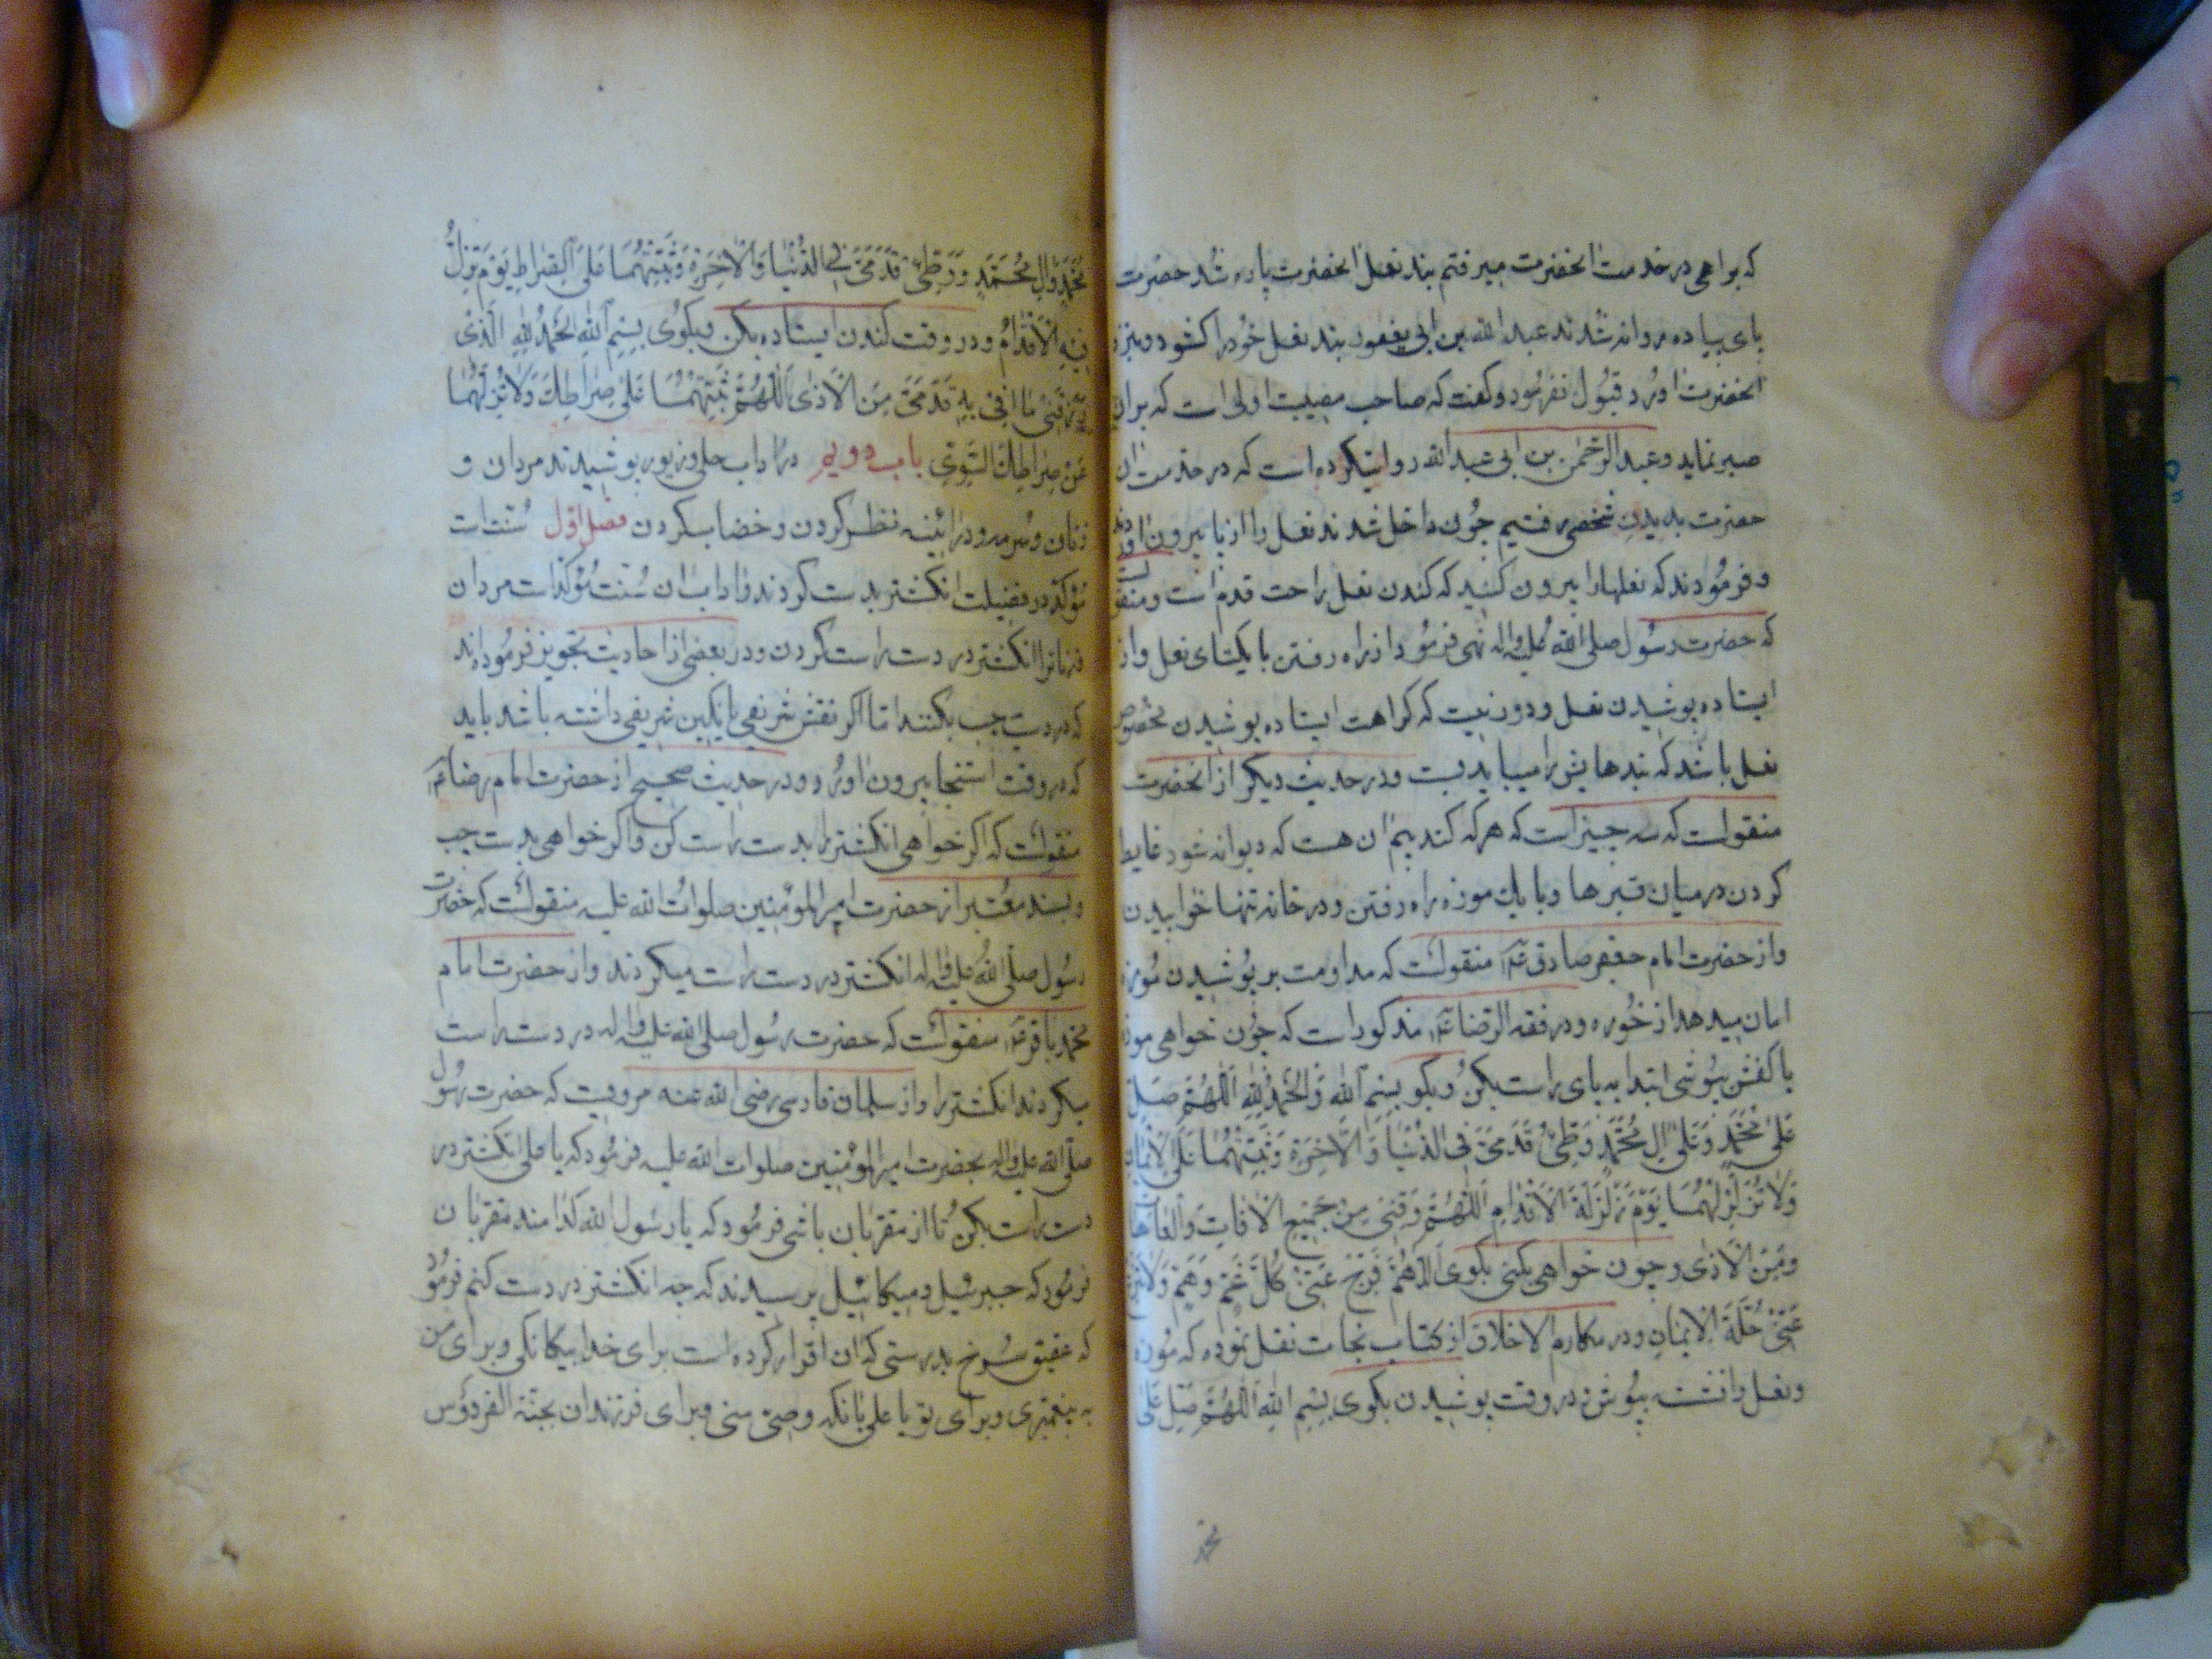 که براهی در خدمت انحضرت میرفتم بند نعل انحضرت پاره شد حضرت
پای پیاده روانه شدند عبد الله بن ابی یعفور بند نعل خود را کشود و بنزد
انحضرت اورد قبول نفرمود و کفت که صاحب مصیبت اولی است که بران
صبر نماید و عبد الرحمن بن ابی عبد الله روایتکرده است که در خدمت ان
حضرت بدیدن شخصی رفتیم چون داخل شدند نعل را از پا بیرون اوردند
و فرمودند که نعلها را بیرون کنید که کندن نعل راحت قدم است و منقولست
که حضرت رسول صلی الله علیه واله نهی فرمود از راه رفتن با یکتای نعل و از
ایستاده پوشیدن نعل و دور نیست که کراهت ایستاده پوشیدن مخصوص
نعل باشد که بندهایش را میباید بست و در حدیث دیکر از انحضرت
منقولست که سه چیز است که هر که کند بیم ان هست که دیوانه شود غایط
کردن در میان قبرها و با یك موزه راه رفتن و در خانه تنها خوابیدن
و از حضرت امام جعفر صادق ع منقولست که مداومت بر پوشیدن موزه
امان میدهد از خوره و در فقه الرضا ع مذکور است که چون خواهی موزه
یا کفش بپوشی ابتدا به پای راست بکن و بکو بِسْمِ اللهِ وَالْحَمْدُ لِلّٰهِ اَللّٰهُمَّ صَلِّ
عَلٰی مُحَمَّدٍ وَعَلٰی اٰلِ مُحَمَّدٍ وَطِّیْ قَدَمَیَّ فِی الدُّنْیَا وَالْاٰخِرَةِ وَثَبِّتْهُمَا عَلَی الْاِیْمَانِ
وَلَا تُزَلْزِلْهُمَا یَوْمَ زَلْزَلَةِ الْاَقْدَامِ اَللّٰهُمَّ وَقِنِیْ مِنْ جَمِیْعِ الْاٰفَاتِ وَالْعَاهَاتِ
وَمِنَ الْاَذٰی و چون خواهی بکنی بکوی اَللّٰهُمَّ فَرِّجْ عَنِّیْ کُلَّ غَمٍّ وَهَمٍّ وَلَا تَنْزِعْ
عَنِّیْ حُلَّةَ الْاِیْمَانِ و در مکارم الاخلاق از کتاب نجات نقل نموده که موزه
و نعل را نشسته بپوش و در وقت پوشیدن بکوی بِسْمِ اللهِ اَللّٰهُمَّ صَلِّ عَلٰی
محمد
مُحَمَّدٍ وَاٰلِ مُحَمَّدٍ وَوَطِّیْ قَدَمَیَّ فِی الدُّنْیَا وَالْاٰخِرَةِ وَثَبِّتْهُمَا عَلَی الصِّرَاطِ یَوْمَ تَزِلُّ
فِیْهِ الْاَقْدَامُ و در وقت کندن ایستاده بکن و بکوی بِسْمِ اللهِ اَلْحَمْدُ لِلّٰهِ الَّذِیْ
رَزَقَنِیْ مَا اَقِیْ بِهِ قَدَمَیَّ مِنَ الْاَذٰی اَللّٰهُمَّ ثَبِّتْهُمَا عَلٰی صِرَاطِكَ وَلَا تُزِلَّهُمَا
عَنْ صِرَاطِكَ السَّوِیِّ باب دویم در اداب حلی و زیور پوشیدند مردان و
زنان و سرمه و در ائینه نظر کردن و خضاب کردن فصل اول سنت است
مؤکد در فضیلت انکشتر بدست کردند و اداب ان سنت مؤکد است مردان
و زنانرا انکشتر در دست راست کردن و در بعضی از احادیث تجویز فرموده اند
که در دست چپ بکنند اما اکر نقش شریفی یا نکین شریفی داشته باشد باید
که در وقت استنجا بیرون اورد و در حدیث صحیح از حضرت امام رضا ع
منقولست که اکر خواهی انکشتر را بدست راست کن و اکر خواهی بدست چپ
و بسند معتبر از حضرت امیر المومنین صلوات الله علیه منقولست که حضرت
رسول صلی الله علیه واله انکشتر در دست راست میکردند و از حضرت امام
محمد باقر ع منقولست که حضرت رسول صلی الله علیه واله در دست راست
میکردند انکشتر را و از سلمان فارسی رضی الله عنه مرویست که حضرت رسول
صلی الله علیه واله بحضرت امیر المومنین صلوات الله علیه فرمود که یا علی انکشتر در
دست راست بکن تا از مقربان باشی فرمود که یا رسول الله کدامند مقربان
فرمود که جبرئیل و میکائیل پرسیدند که چه انکشتر در دست کنم فرمود
که عقیق سرخ بدرستی که ان اقرار کرده است برای خدا بیکانکی و برای من
به پیغمبری و برای تو یا علی بانکه وصی منی و برای فرزندان بجنة الفردوس